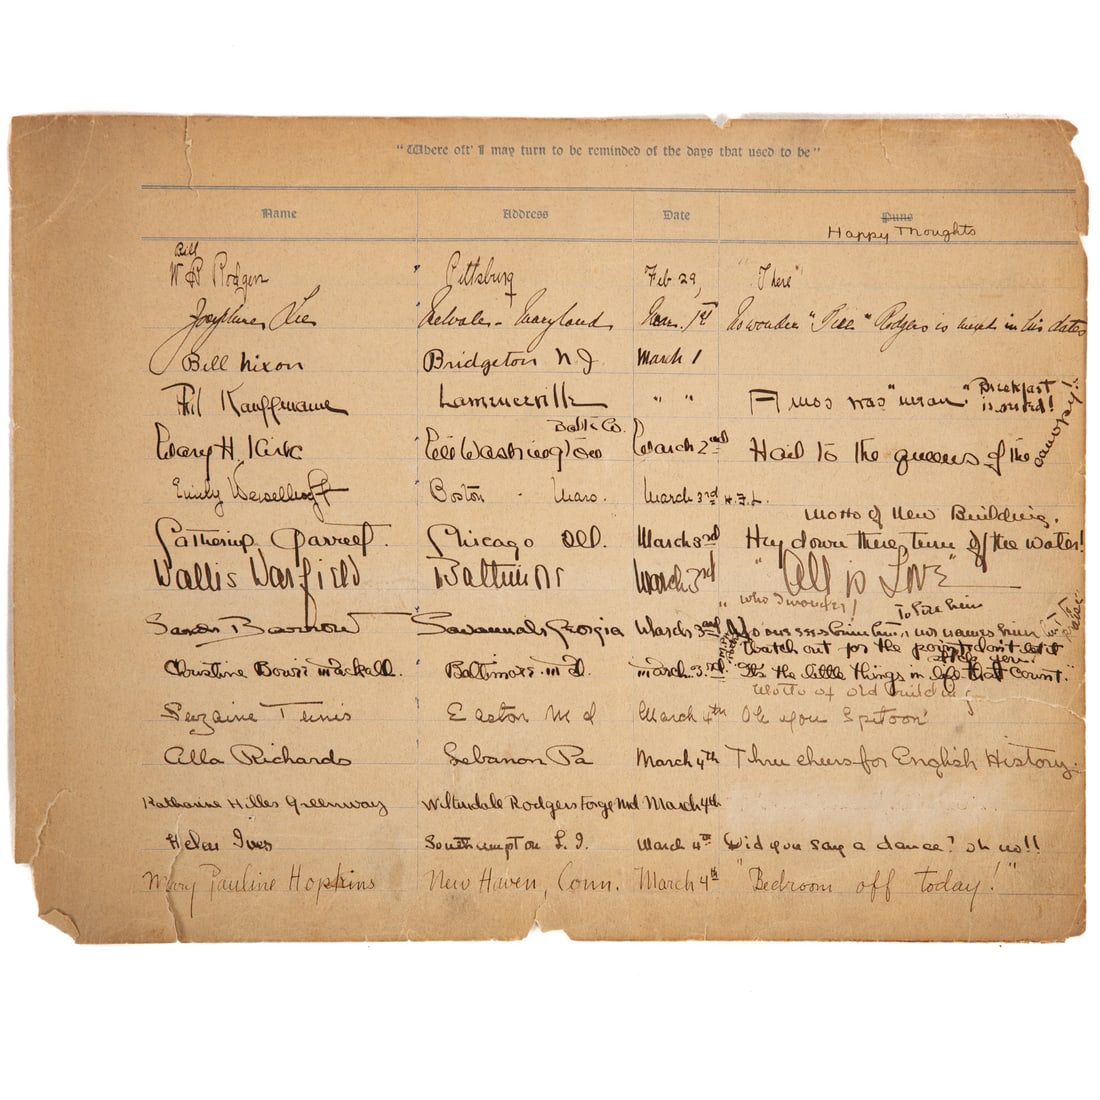 "Where oft' I may turn to be reminded of the days that used to be"
Name Address Date Puns
Happy Thoughts
Bill
W P Rodgers Pittsburg Feb 29, "There"
Josephine Lee Maryland Mar. 1st No wonder "Bill" Rodgers is mixed in his dates
Bill Nixon Bridgeton N J March 1
Phil Kauffmann " " A was "mean" "Breakfast is served!
Balto Co.
Mary H. Kirk Washington March 2nd Hail to the queens of the canopy!!
Emily Boston - Mass. March 3rd H.F.L.
Motto of New Building.
Catherine Garrett. Chicago Ill. March 3rd Hey down there, turn off the water!
Wallis Warfield Baltimore March 3rd "All is Love"
"who I wonder!
To
Sarah Savannah Georgia March 3rd No one
Watch out for the point, don't let it
you.
Christine Bowie Mackall. Baltimore. M d. March. 3.rd It's the little things in life that count."
Motto of old building
Suzaine Tennis Easton Md March 4th Oh you Spitoon
Alla Richards Lebanon Pa March 4th Three cheers for English History.
Katharine Hilles Greenway Rodgers Forge Md March 4th
Helen Ives Southampton L. I. March 4th Did you say a dance? oh no!!
Mary Pauline Hopkins New Haven, Conn. March 4th "Bedroom off today!"